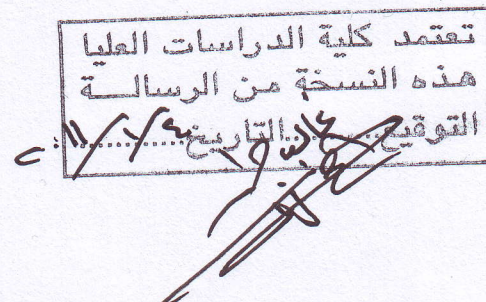 تعتمد كلية الدراسات العليا
هذه النسخة من الرسالــة
التوقيع..............التاريخ..............